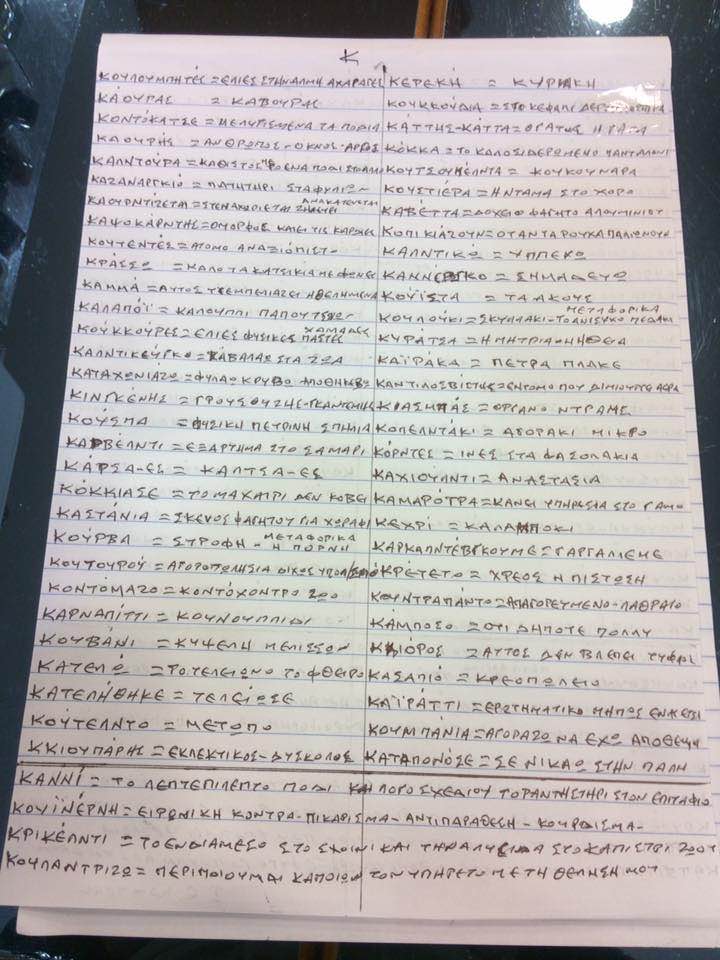 Κ
ΚΟΥΛΟΥΜΠΗΤΕΣ = ΕΛΙΕΣ ΣΤΗΝ ΑΛΜΗ ΑΧΑΡΑΓΕΣ
ΚΑΟΥΡΑΣ = ΚΑΒΟΥΡΑΣ
ΚΟΝΤΟΚΑΤΣΕ = ΤΑ ΠΟΔΙΑ
ΚΑΟΥΡΗΣ = ΑΝΘΡΩΠΟΣ - ΟΚΝΟΣ - ΑΡΓΟΣ
ΚΑΛΝΤΟΥΡΑ = ΚΑΘΙΣΤΟΣ
ΚΑΖΑΝΑΡΓΚΙΟ = ΠΑΤΗΤΗΡΙ ΣΤΑΦΥΛΙΩΝ
ΚΑΟΥΡΝΤΙΖΕΤΑΙ = ΣΤΕΝΑΧΩΡΙΕΤΑΙ ΑΝΑΚΑΤΕΥΕΤΑΙ
ΚΑΨΟΚΑΡΝΤΗΣ = ΟΜΟΡΦΟΣ ΚΑΙΕΙ ΤΙΣ ΚΑΡΔΙΕΣ
ΚΟΥΤΕΝΤΕΣ = ΑΤΟΜΟ ΑΝΑΞΙΟΠΙΣΤΟ
ΚΡΑΣΣΩ = ΜΑΛΟ ΤΑ ΚΑΤΣΙΚΙΑ ΜΕ ΦΩΝΕΣ
ΚΑΜΜΑ = ΑΥΤΟΣ ΗΘΕΛΗΜΕΝΑ
ΚΑΛΑΠΟΪ = ΚΑΛΟΥΠΙ ΠΑΠΟΥΤΣΙΩΝ
ΚΟΥΚΚΟΥΡΕΣ = ΕΛΙΕΣ ΦΥΣΙΚΕΣ ΠΑΣΤΕΣ ΧΑΜΑΔΕΣ
ΚΑΛΝΤΙΚΕΥΓΚΟ = ΚΑΒΑΛΑΩ ΣΤΑ ΖΩΑ
ΚΑΤΑΧΩΝΙΑΖΩ = ΦΥΛΑΩ ΚΡΥΒΩ ΑΠΟΘΗΚΕΥΩ
ΚΙΝΓΚΕΝΗΣ = ΓΡΟΥΣΟΥΖΗΣ - ΓΚΑΝΤΕΜΗΣ
ΚΟΥΣΠΑ = ΦΥΣΙΚΗ ΠΕΤΡΙΝΗ ΣΠΗΛΙΑ
ΚΑΡΒΕΛΝΤΙ = ΕΞΑΡΤΗΜΑ ΣΤΟ ΣΑΜΑΡΙ
ΚΑΡΣΑ-ΕΣ = ΚΑΛΤΣΑ-ΕΣ
ΚΟΚΚΙΑΣΕ = ΤΟ ΜΑΧΑΙΡΙ ΔΕΝ ΚΟΒΕΙ
ΚΑΣΤΑΝΙΑ = ΣΚΕΥΟΣ ΦΑΓΗΤΟΥ ΓΙΑ ΧΩΡΑΦΙ
ΚΟΥΡΒΑ = ΣΤΡΟΦΗ - ΜΕΤΑΦΟΡΙΚΑ Η ΠΟΡΝΗ
ΚΟΥΤΟΥΡΟΥ = ΑΓΟΡΟΠΩΛΗΣΙΑ ΔΙΧΩΣ
ΚΟΝΤΟΜΑΖΟ = ΚΟΝΤΟΧΟΝΤΡΟ ΖΩΟ
ΚΑΡΝΑΠΙΤΤΙ = ΚΟΥΝΟΥΠΙΔΙ
ΚΟΥΒΑΝΙ = ΚΥΨΕΛΗ ΜΕΛΙΣΣΩΝ
ΚΑΤΕΛΩ = ΤΟ ΤΕΛΕΙΩΝΟ ΤΟ ΦΘΕΙΡΩ
ΚΑΤΕΛΗΘΗΚΕ = ΤΕΛΕΙΩΣΕ
ΚΟΥΤΕΛΝΤΟ = ΜΕΤΩΠΟ
ΚΚΙΟΥΠΑΡΗΣ = ΕΚΛΕΚΤΙΚΟΣ - ΔΥΣΚΟΛΟΣ
ΚΕΡΕΚΗ = ΚΥΡΙΑΚΗ
ΚΟΥΚΚΟΥΔΙΑ = ΣΤΟ ΚΕΦΑΛΙ
ΚΑΤΤΗΣ - ΚΑΤΤΑ = Ο ΓΑΤΟΣ Η ΓΑΤΑ
ΚΟΚΚΑ = ΤΟ ΚΑΛΟΣΙΔΕΡΩΜΕΝΟ ΠΑΝΤΑΛΟΝΙ
ΚΟΥΤΣΟΥΜΕΛΝΤΑ = ΚΟΥΚΟΥΝΑΡΑ
ΚΟΥΣΤΙΕΡΑ = Η ΝΤΑΜΑ ΣΤΟ ΧΟΡΟ
ΚΑΒΕΤΤΑ = ΔΟΧΕΙΟ ΦΑΓΗΤΟ ΑΛΟΥΜΙΝΙΟΥ
ΚΟΠΙΚΙΑΖΟΥΝ = ΟΤΑΝ ΤΑ ΡΟΥΧΑ ΠΑΛΙΩΝΟΥΝ
ΚΑΛΝΤΙΚΩ = ΥΠΠΕΥΩ
ΚΑΝΝΕΥΓΚΟ = ΣΗΜΑΔΕΥΩ
ΚΟΥΪΣΤΑ = ΤΑ ΑΚΟΥΣ
ΚΟΥΛΟΥΚΙ = ΣΚΥΛΑΑΚΙ - ΤΟ ΑΝΙΣΥΧΟ ΠΕΔΑΚΙ ΜΕΤΑΦΟΡΙΚΑ
ΚΥΡΑΤΣΑ = Η ΜΗΤΡΙΑ
ΚΑΪΡΑΚΑ = ΠΕΤΡΑ ΠΛΑΚΕ
ΚΑΝΤΙΛΟΣΒΙΣΤΗΣ = ΕΝΤΟΜΟ ΠΟΥ ΔΙΜΙΟΥΡΓΕ ΑΕΡΑ
= ΟΡΓΑΝΟ ΝΤΡΑΜΣ
ΚΟΠΕΛΝΤΑΚΙ = ΑΓΟΡΑΚΙ ΜΙΚΡΟ
ΚΟΡΝΤΕΣ = ΙΝΕΣ ΣΤΑ ΦΑΣΟΛΑΚΙΑ
ΚΑΧΙΟΥΛΝΤΙ = ΑΝΑΣΤΑΣΙΑ
ΚΑΜΑΡΟΤΡΑ = ΚΑΝΕΙ ΥΠΗΡΕΣΙΑ ΣΤΟ ΓΑΜΟ
ΚΕΧΡΙ = ΚΑΛΑΜΠΟΚΙ
ΚΑΡΚΑΛΝΤΕΒΓΚΟΥΜΕ = ΓΑΡΓΑΛΙΕΜΕ
ΚΡΕΤΕΤΟ = ΧΡΕΟΣ Η ΠΙΣΤΩΣΗ
ΚΟΥΝΤΡΑΠΑΝΤΟ = ΑΠΑΓΟΡΕΥΜΕΝΟ - ΛΑΘΡΑΙΟ
ΚΑΜΠΟΣΟ = ΟΤΙ ΔΗΠΟΤΕ ΠΟΛΛΥ
ΚΙΟΡΟΣ = ΑΥΤΟΣ ΔΕΝ ΒΛΕΠΕΙ
ΚΑΣΑΠΙΟ = ΚΡΕΟΠΩΛΕΙΟ
ΚΑΪΡΑΤΤΙ = ΕΡΩΤΗΜΑΤΙΚΟ ΜΗΠΩΣ ΕΝΑΙ ΕΤΣΙ
ΚΟΥΜΠΑΝΙΑ = ΑΓΟΡΑΖΩ ΝΑ ΕΧΩ ΑΠΟΘΕΜΑ
ΚΑΤΑΠΟΝΟΣΕ = ΣΕ ΝΙΚΑΩ ΣΤΗΝ ΠΑΛΗ
ΚΑΝΝΙ = ΤΟ ΛΕΠΤΕΠΙΛΕΠΤΟ ΠΟΔΙ ΚΑΙ ΛΟΓΟ ΣΧΕΔΙΟΥ ΤΟ ΡΑΝΤΗΣΤΗΡΙ ΣΤΟΝ ΕΠΙΤΑΦΙΟ
ΚΟΥΪΝΕΡΝΗ = ΕΙΡΩΝΙΚΗ ΚΟΝΤΡΑ - ΠΙΚΑΡΙΣΜΑ - ΑΝΤΙΠΑΡΑΘΕΣΗ - ΚΟΥΡΔΙΣΜΑ -
ΚΡΙΚΕΛΝΤΙ = ΤΟ ΕΝΔΙΑΜΕΣΟ ΣΤΟ ΣΧΟΙΝΙ ΚΑΙ ΤΗΝ ΑΛΥΣΙΔΑ ΣΤΟ ΚΑΠΙΣΤΡΙ ΖΩΟΥ
ΚΟΥΛΑΝΤΡΙΖΩ = ΠΕΡΙΠΟΙΟΥΜΑΙ ΚΑΠΟΙΟΝ ΤΟΝ ΥΠΗΡΕΤΩ ΜΕ ΤΗ ΘΕΛΗΣΗ ΜΟΥ